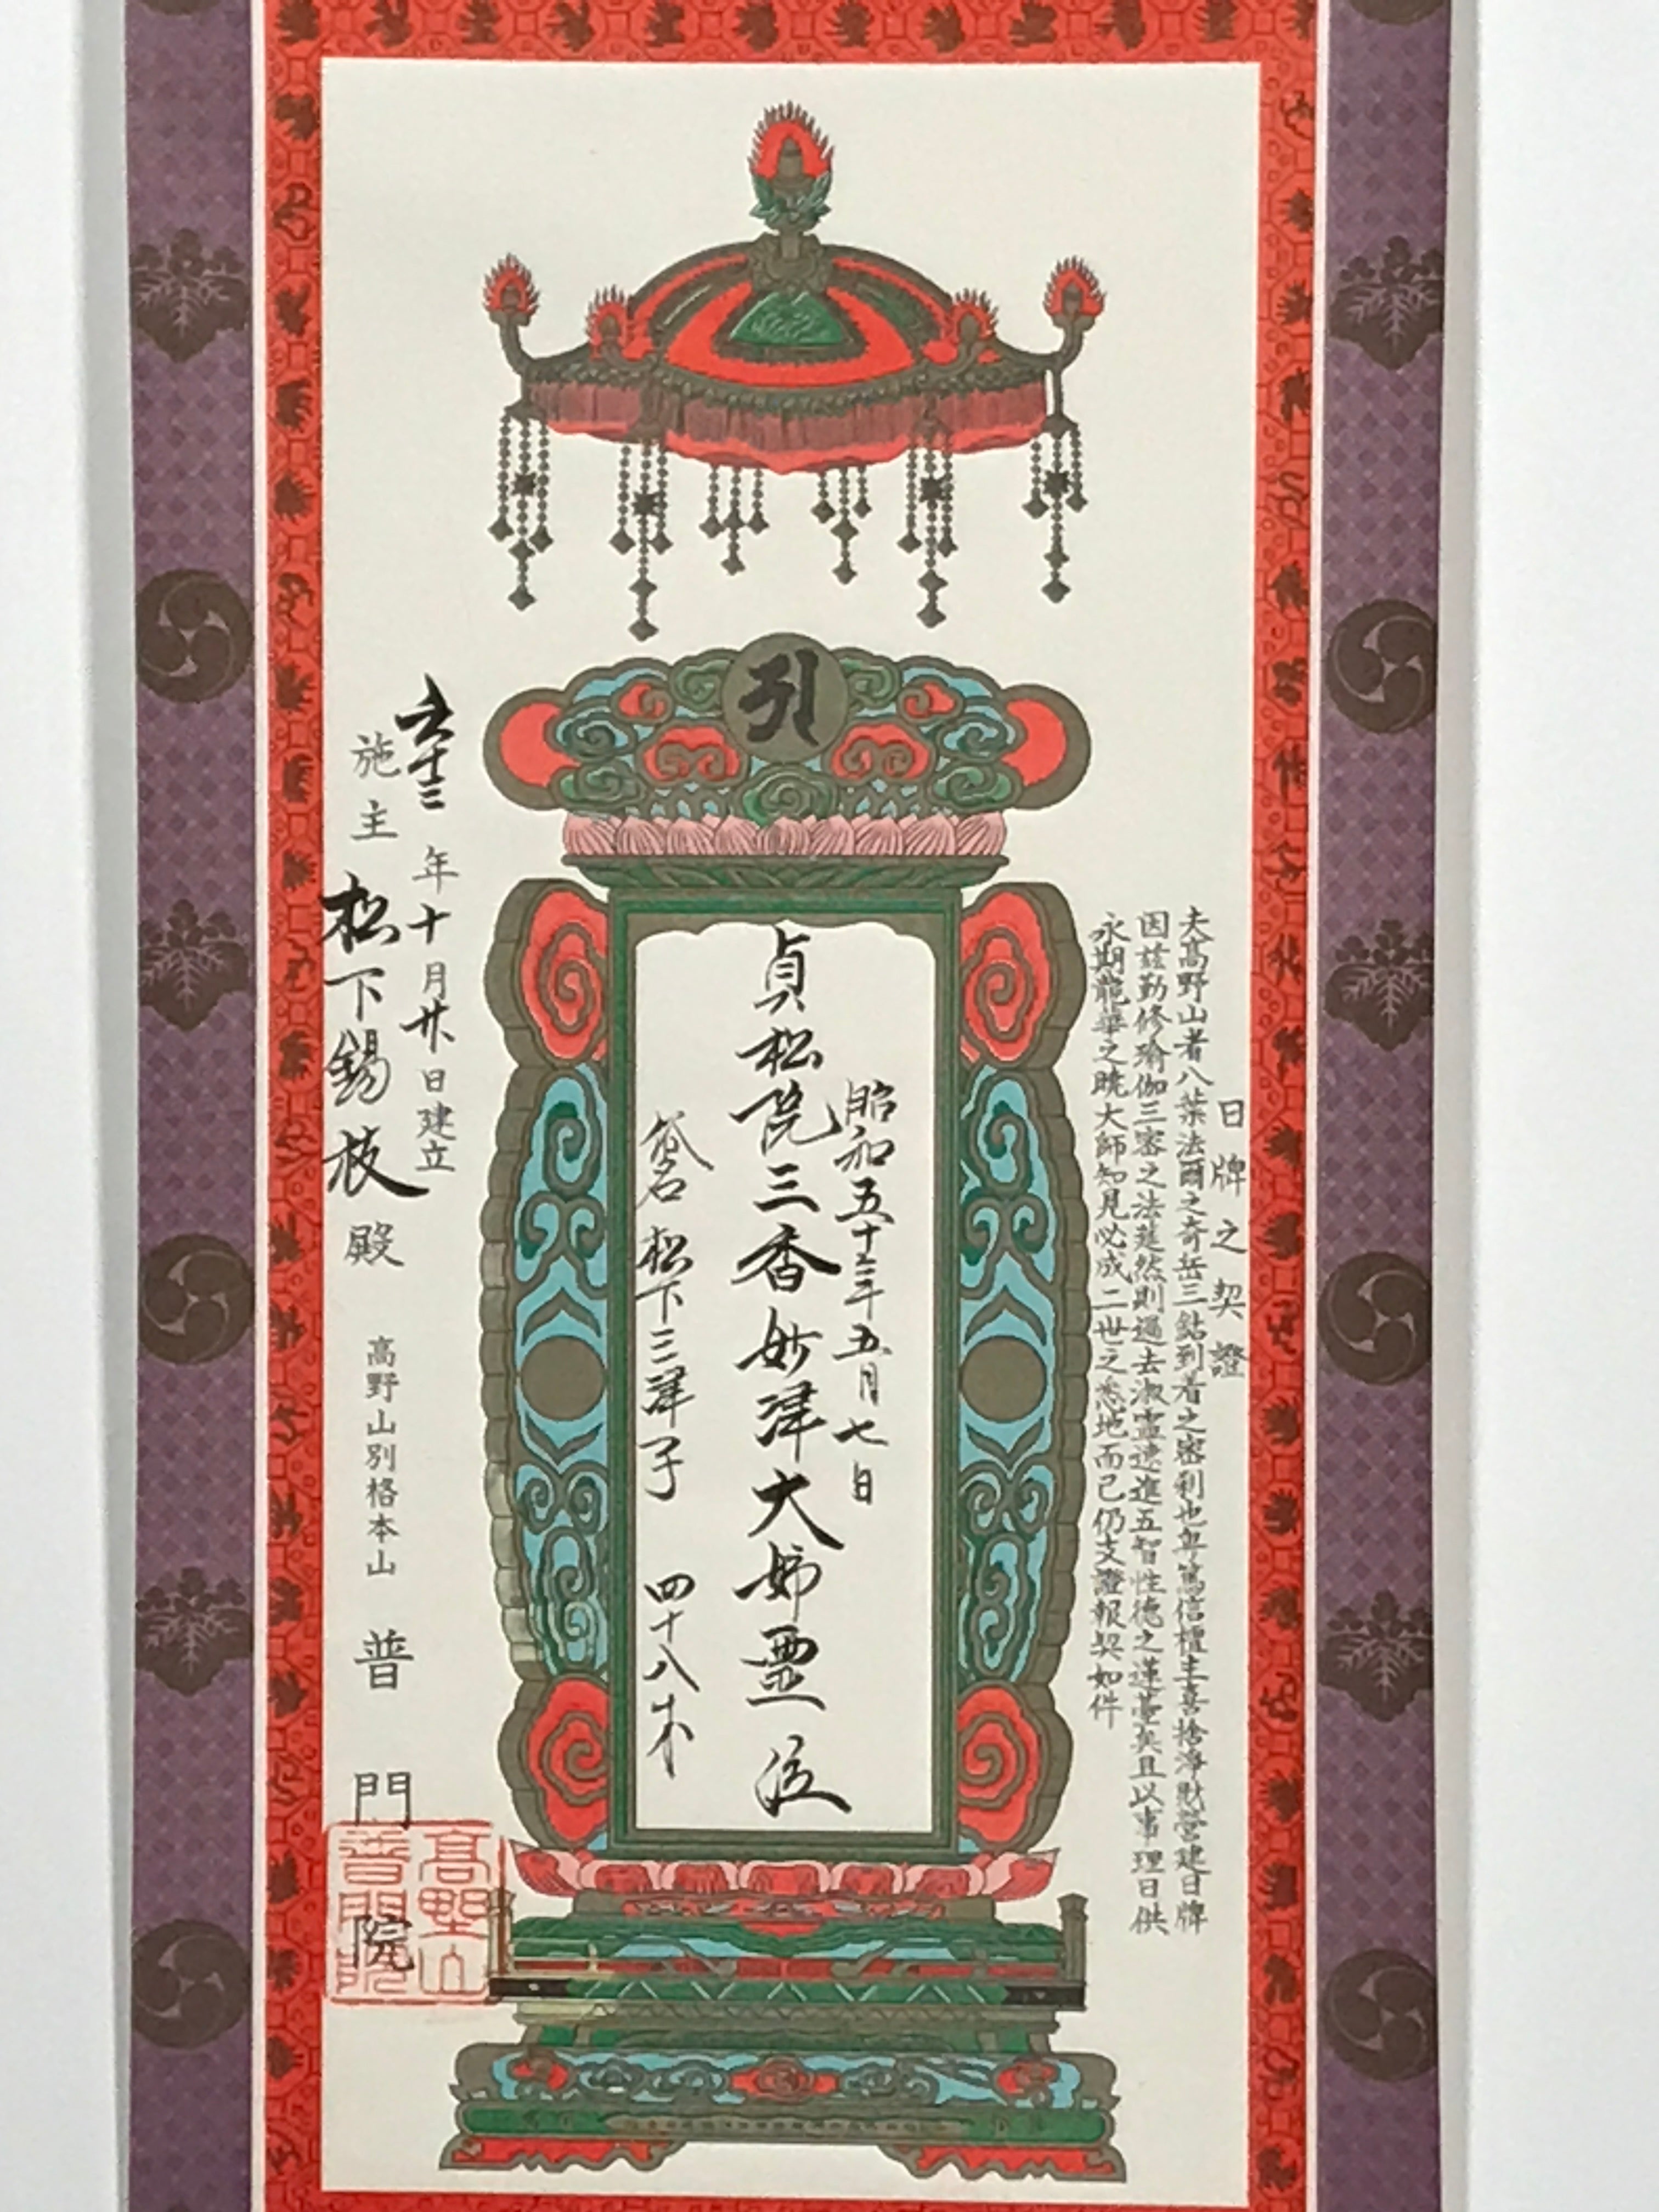 日牌之契證
夫髙野山者八葉法爾之奇岳三鈷到着之密刹也
篤信檀主喜捨淨財營建日牌
因茲勤修瑜伽三密之法莚然則過去淑靈速進五智性德之蓮臺矣且以事理日供
永期龍華之曉大師知見必成二世之悉地而已仍支證報契如件
昭和五十三年五月七日
貞松院三香妙津大姉霊位
俗名 松下三津子 四十八才
五十三年十月廿日建立
施主 松下錫枝殿
高野山別格本山 普門院
高野山
普門院